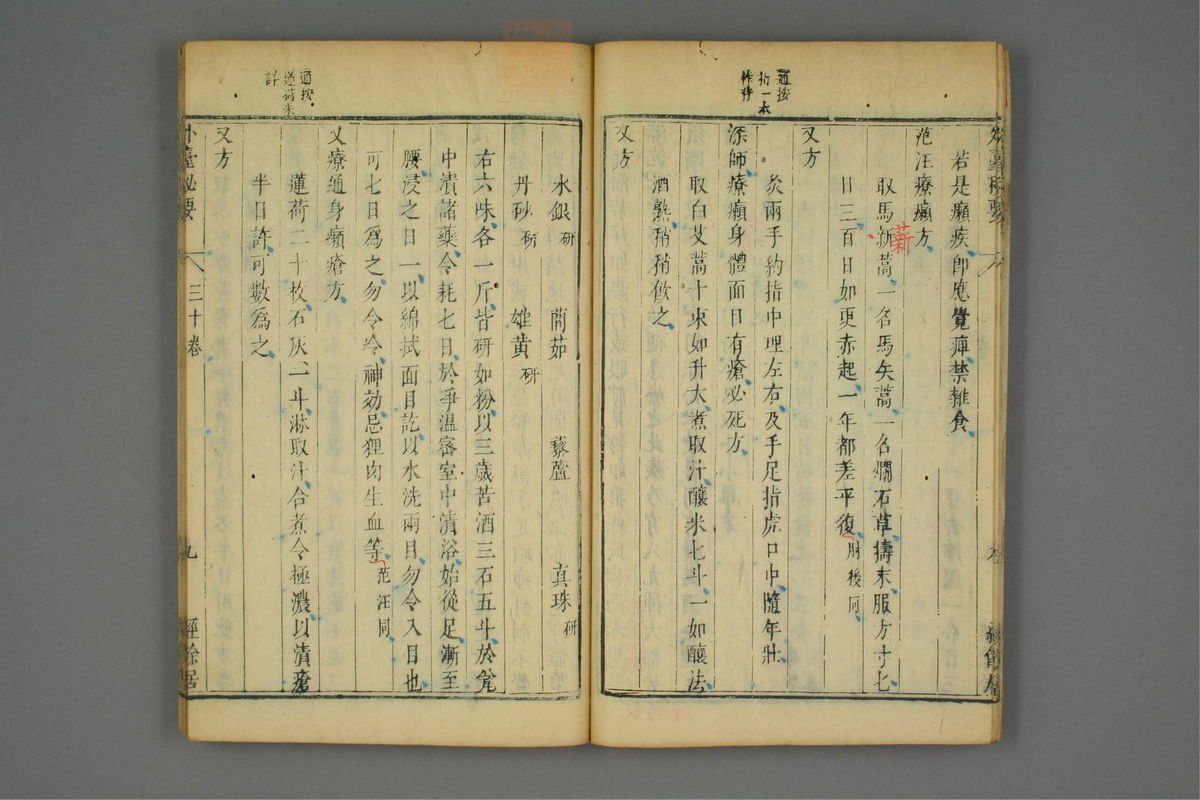 若是癩疾卽應覺痺禁雜食
范汪療癩方
取馬新蒿一名馬矢蒿一名爛石草擣末服方寸匕
蘄
日三百日如更赤起一年都差平復肘後同
又方
灸兩手約指中理左右及手足指虎口中隨年壯
深師療癩身體面目有瘡必死方
取白艾蒿十束如升大煮取汁釀米七斗一如釀法
酒熟稍稍飲之
又方
水銀研　䕡茹　藜蘆　真珠研
丹砂研　雄黃研
右六味各一斤皆研如粉以三歲苦酒三石五斗於瓮
中漬諸藥令耗七日於淨溫密室中漬浴始從足漸至
腰浸之日一以綿拭面目訖以水洗兩目勿令入目也
可七日爲之勿令冷神効忌狸肉生血等范汪同
又療通身癩瘡方
蓮荷二十枚石灰一斗淋取汁合煮令極濃以漬瘡
半日許可數爲之
又方
外臺祕要
三十卷
九
經餘居